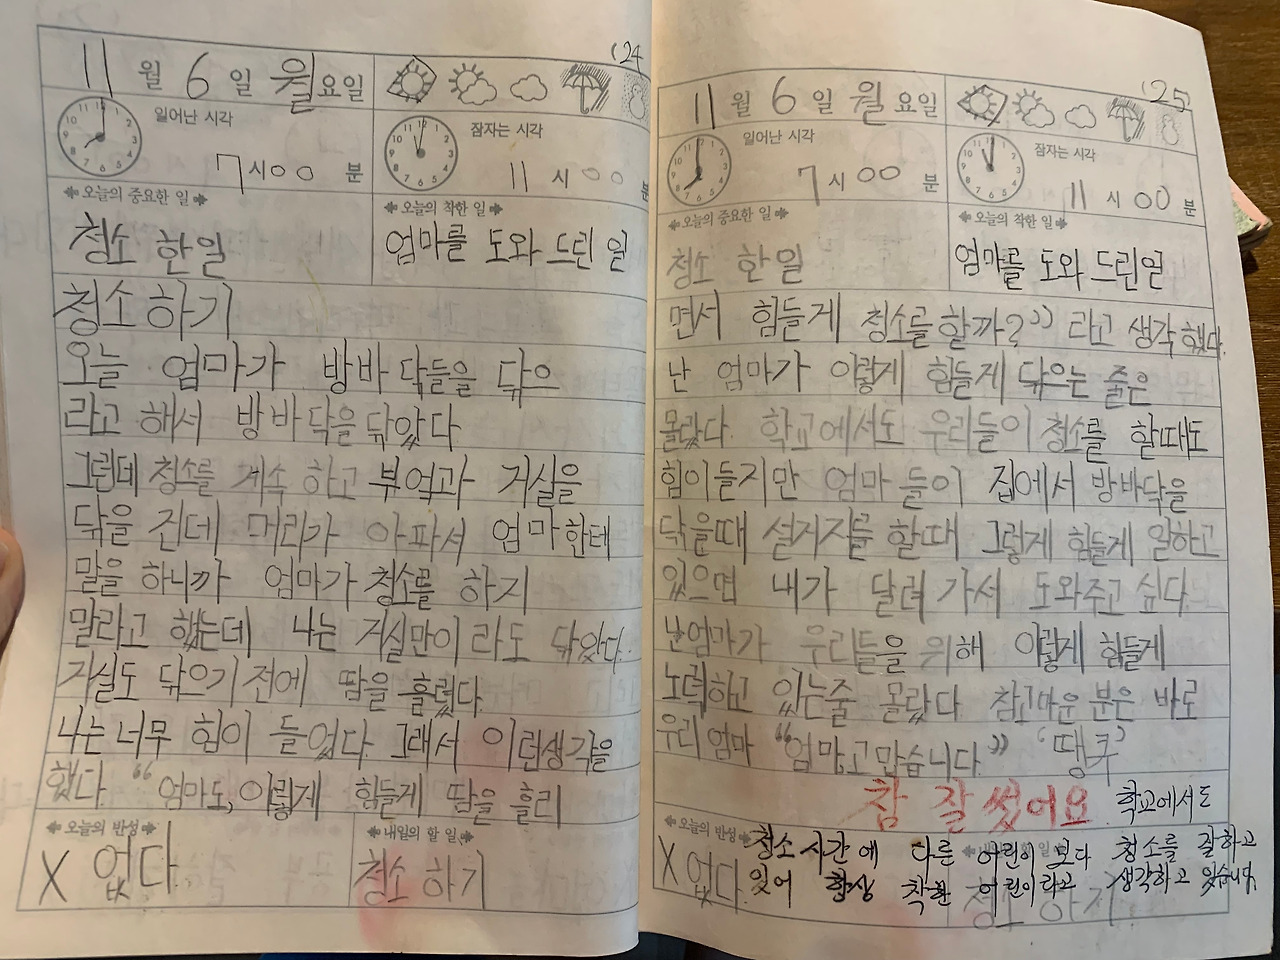 '24
11월 6일 월요일
일어난 시각
7시 00분
잠자는 시각
11시 00분
오늘의 중요한 일
청소 한일
오늘의 착한 일
엄마를 도와 드린 일
청소 하기
오늘 엄마가 방바닥들을 닦으
라고 해서 방바닥을 닦았다
그런데 청소를 계속 하고 부엌과 거실을
닦을 진데 머리가 아파서 엄마한테
말을 하니까 엄마가 청소를 하기
말라고 했는데 나는 거실만이라도 닦았다.
거실도 닦으기 전에 땀을 흘렸다
나는 너무 힘이 들었다. 그래서 이런생각을
했다. "엄마도, 이렇게 힘들게 땀을 흘리
오늘의 반성
X 없다.
내일의 할 일
청소 하기
'25
11월 6일 월요일
일어난 시각
7시 00분
잠자는 시각
11시 00분
오늘의 중요한 일
청소 한일
오늘의 착한 일
엄마를 도와 드린일
면서 힘들게 청소를 할까?" 라고 생각 했다.
난 엄마가 이렇게 힘들게 닦으는 줄은
몰랐다. 학교에서도 우리들이 청소를 할때도
힘이 들지만 엄마들이 집에서 방바닥을
닦을때 설거지를 할때 그렇게 힘들게 일하고
있으면 내가 달려 가서 도와주고 싶다.
난 엄마가 우리들을 위해 이렇게 힘들게
노력하고 있는줄 몰랐다. 참고마운 분은 바로
우리 엄마 "엄마고맙습니다." '땡큐'
참 잘 썼어요 학교에서도
오늘의 반성
X 없다.
청소 시간에 다른 어린이 보다 청소를 잘하고
있어 항상 착한 어린이라고 생각하고 있습니다.
청소 하기